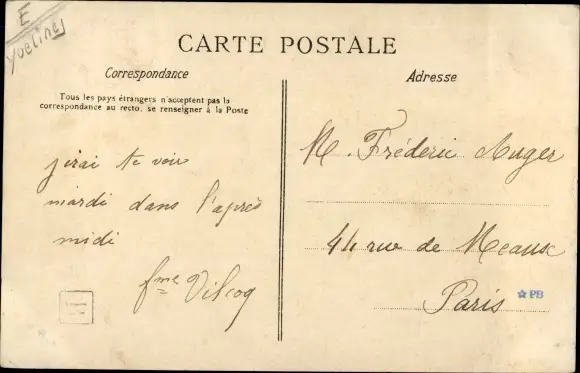 E
Yvelines
CARTE POSTALE
Correspondance
Tous les pays étrangers n'acceptent pas la
correspondance au recto, se renseigner à la Poste
j'irai te voir
mardi dans l'après
midi
fme Vilcoq
Adresse
M. Fréderic Auger
44 rue de Meaux
Paris
PB